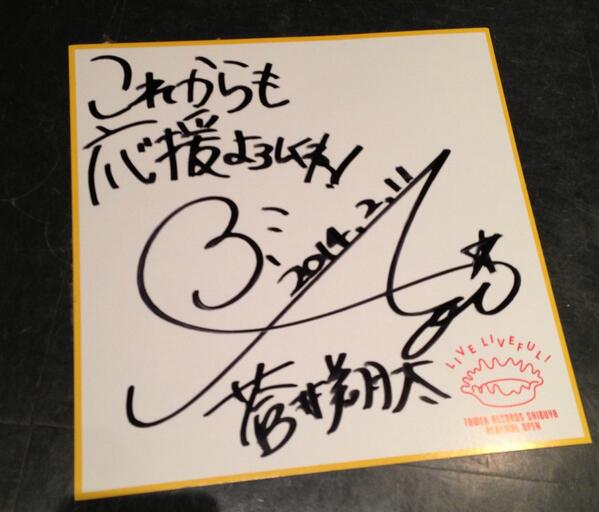 これからも
応援よろしくね!
2014.2.11
蒼井翔太
LIVE LIVEFUL!
TOWER RECORDS SHIBUYA
RENEWAL OPEN